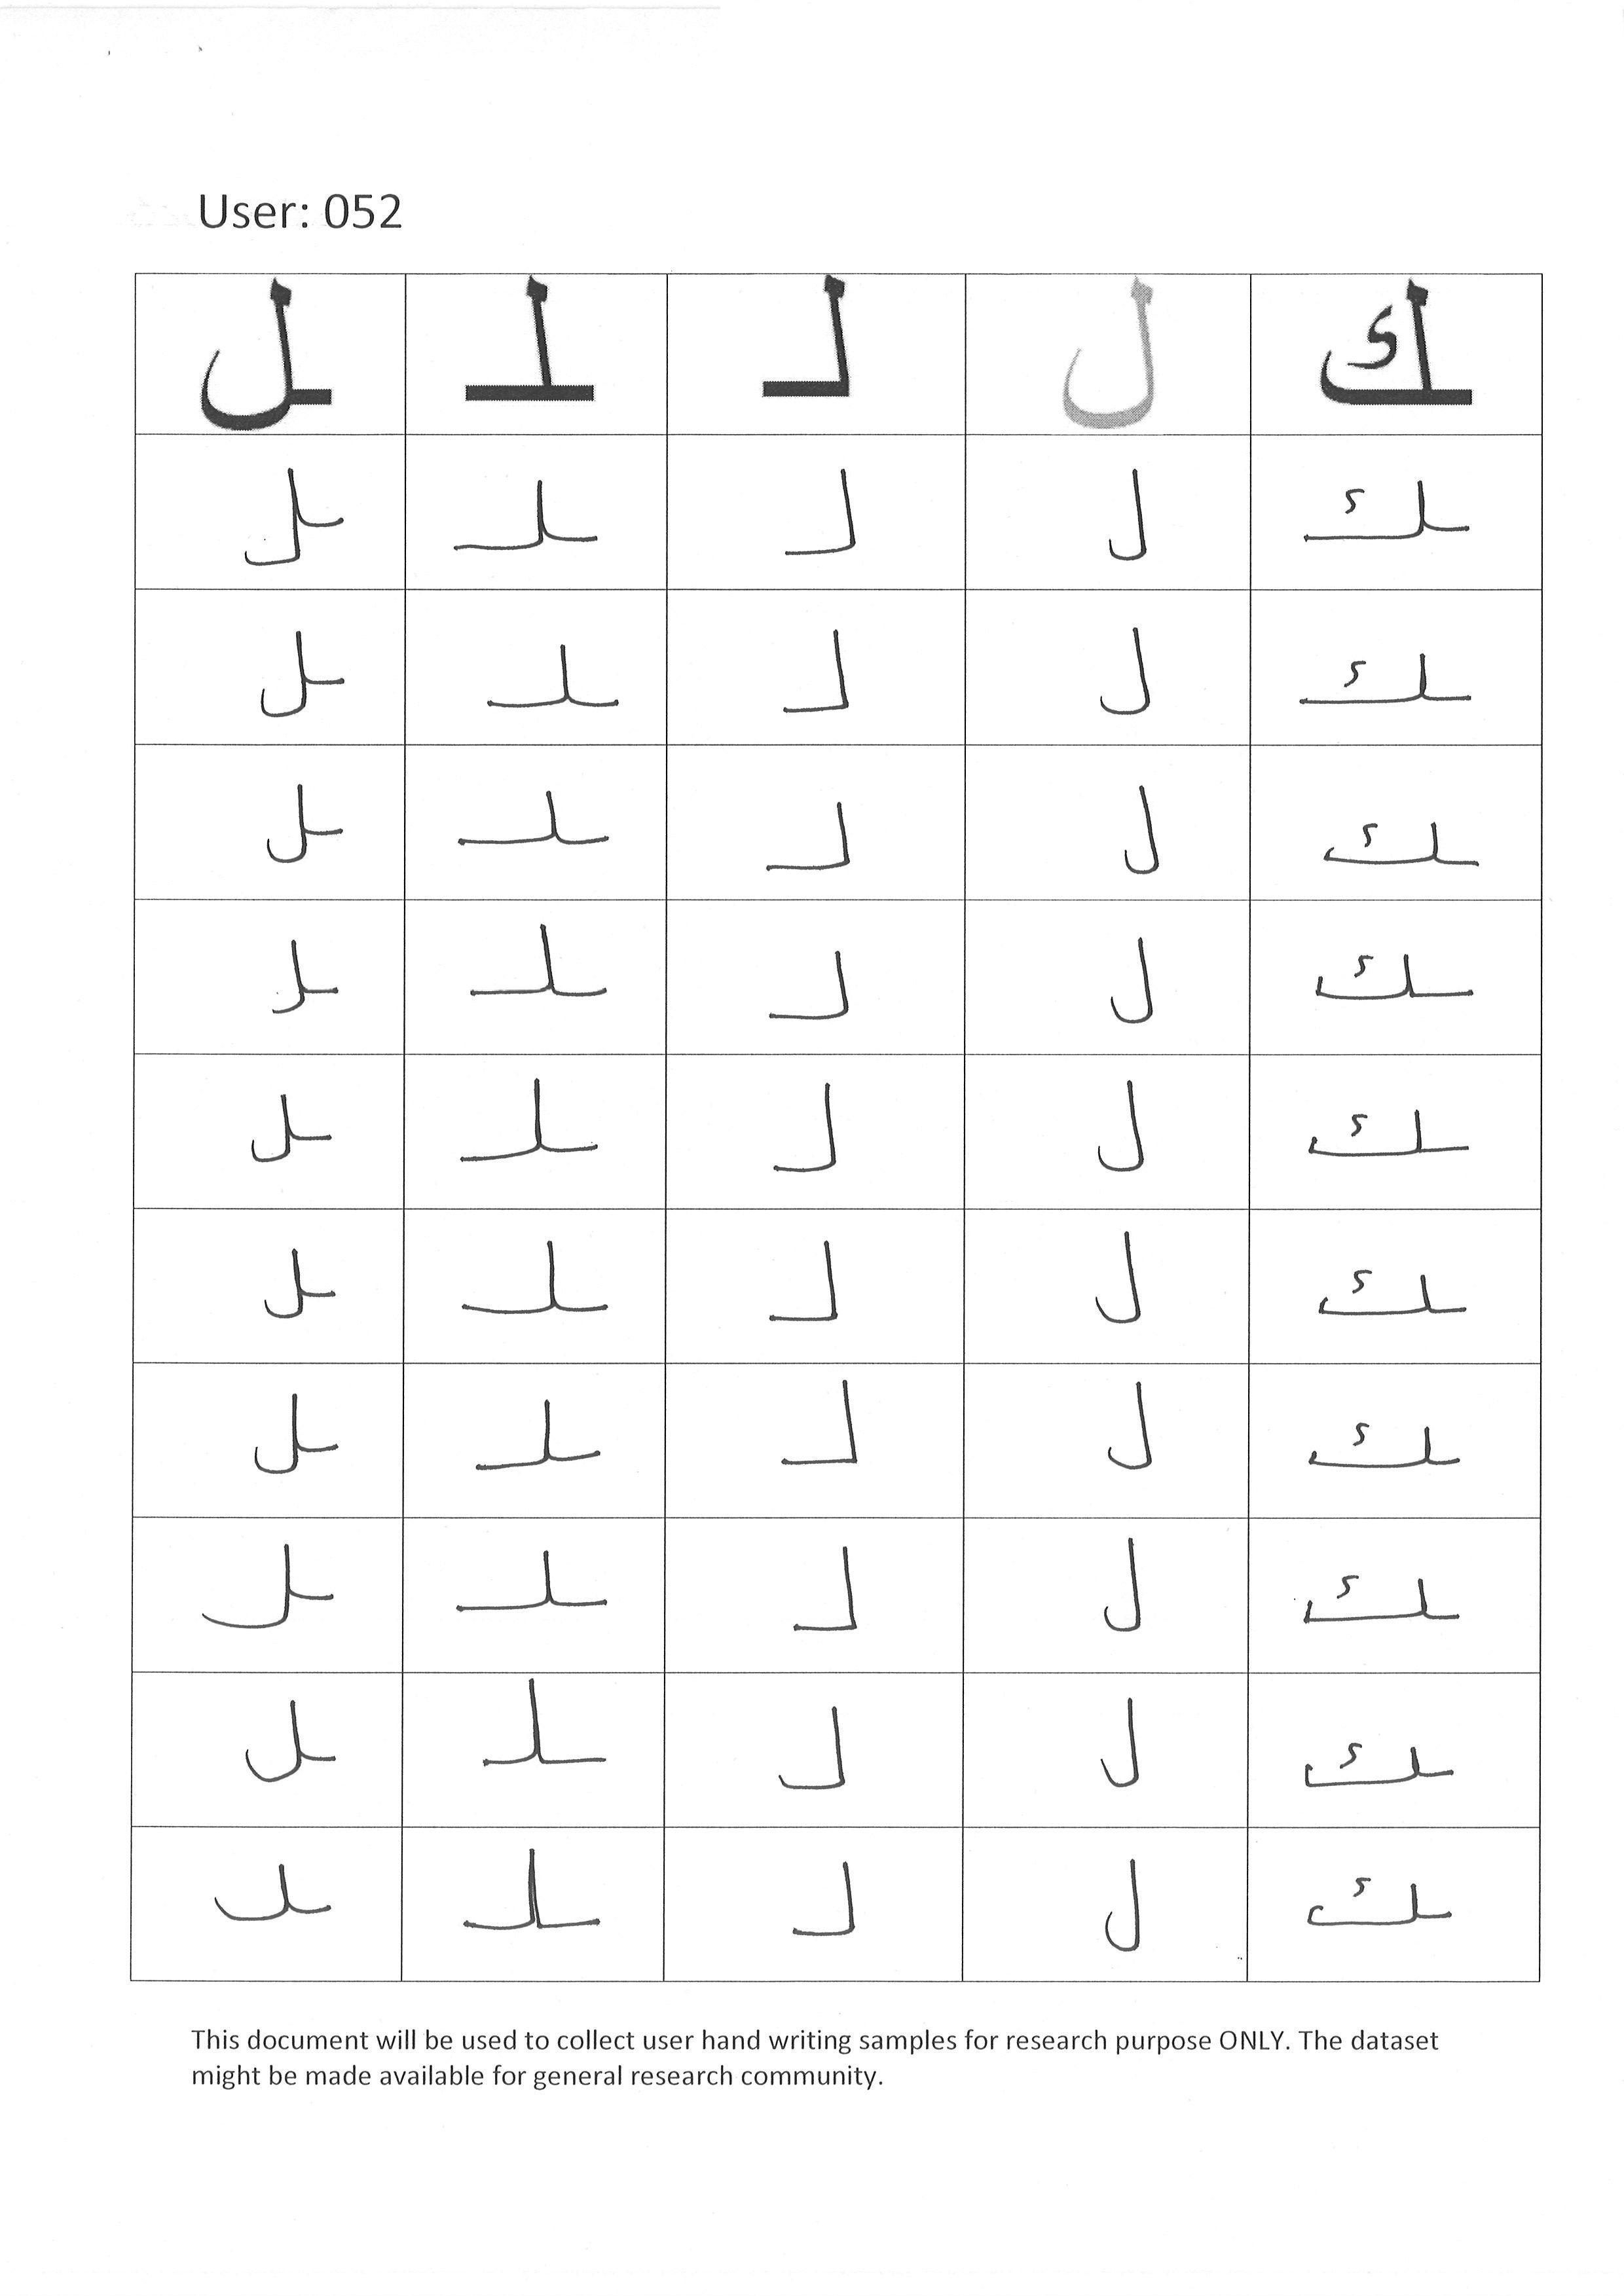 User: 052
ـل ـلـ لـ ل ـك
ـل ـلـ لـ ل ـك
ـل ـلـ لـ ل ـك
ـل ـلـ لـ ل ـك
ـل ـلـ لـ ل ـك
ـل ـلـ لـ ل ـك
ـل ـلـ لـ ل ـك
ـل ـلـ لـ ل ـك
ـل ـلـ لـ ل ـك
ـل ـلـ لـ ل ـك
ـل ـلـ لـ ل ـك
This document will be used to collect user hand writing samples for research purpose ONLY. The dataset
might be made available for general research community.